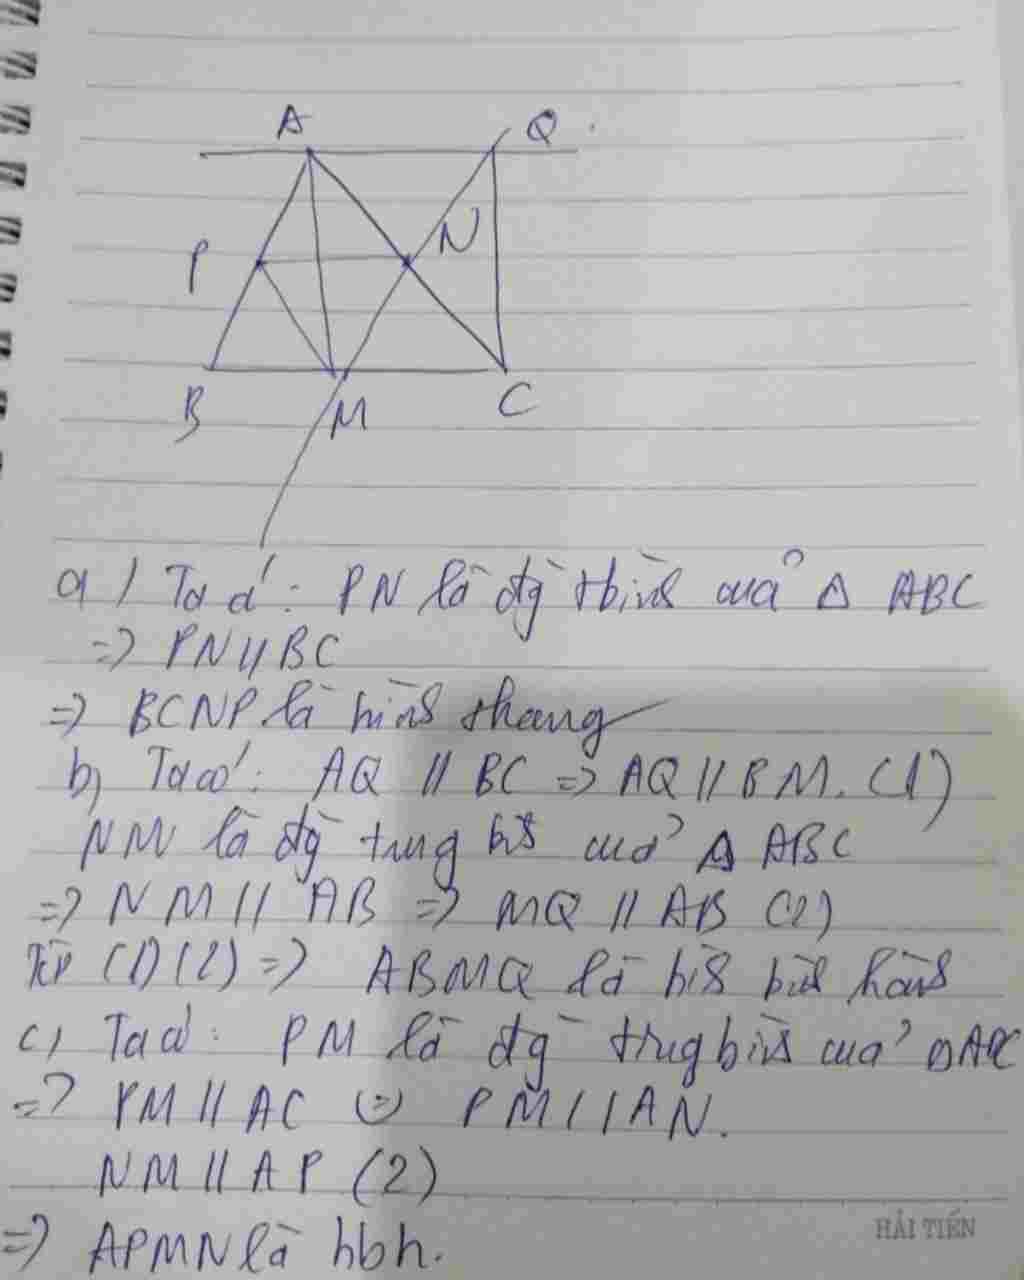 A
Q
N
P
B
M
C
a) Ta có: PN là đg tbình của Δ ABC
=> PN // BC
=> BCNP là hình thang
b) Ta có: AQ // BC => AQ // BM. (1)
NM là đg trung bìh của Δ ABC
=> NM // AB => MQ // AB (2)
Từ (1) (2) => ABMQ là hìh bìh hành
c) Ta có: PM là đg trug bình của Δ ABC
=> PM // AC => PM // AN.
NM // AP (2)
=> APMN là hbh.
HẢI TIẾN